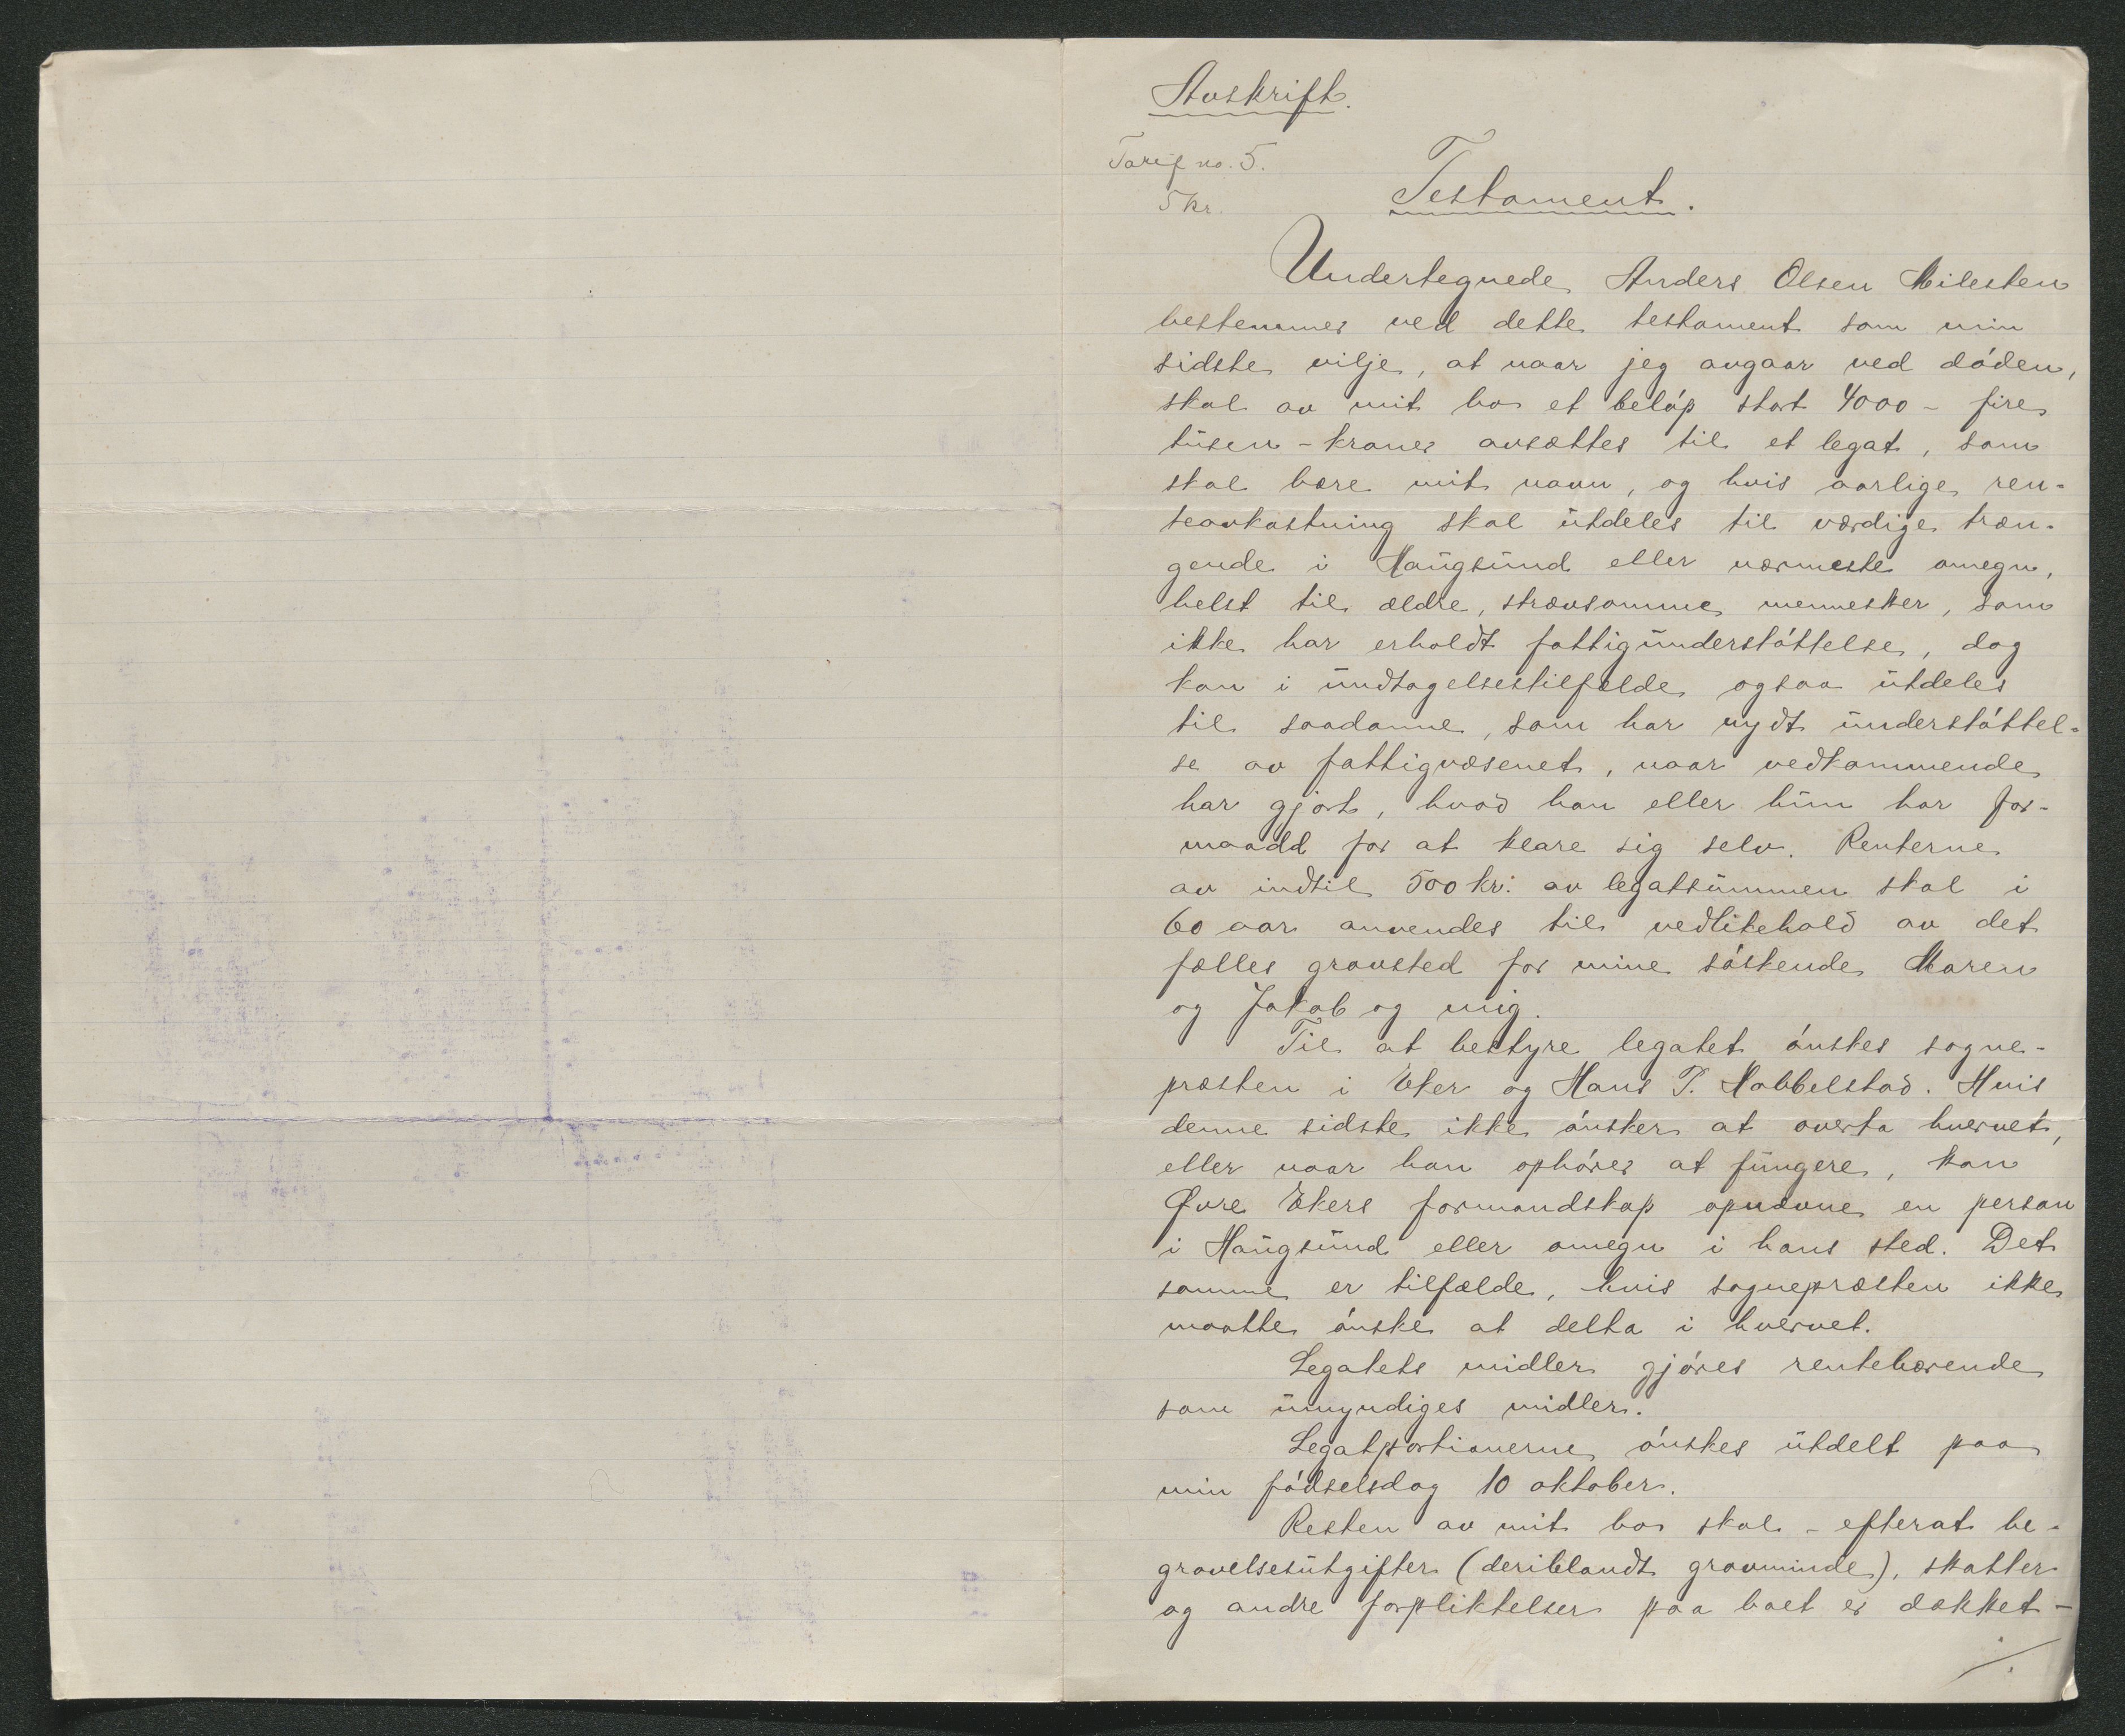 Avskrift.
Tarif no. 5.
5 kr.
Testament.
Undertegnede Anders Olsen Milesten
bestemmer ved dette testament som min
sidste vilje, at naar jeg avgaar ved døden,
skal av mit bo et beløp stort 4000 - fire
tusen - kroner avsættes til et legat, som
skal bære mit navn, og hvis aarlige ren-
teavkastning skal utdeles til værdige træn-
gende i Haugsund eller nærmeste omegn,
helst til ældre, strævsomme mennesker, som
ikke har erholdt fattigunderstøttelse, dog
kan i undtagelsestilfælde ogsaa utdeles
til saadanne, som har nydt understøttel-
se av fattigvæsenet, naar vedkommende
har gjort, hvad han eller hun har for-
maadd for at klare sig selv. Renterne
av indtil 500 kr: av legatsummen skal i
60 aar anvendes til vedlikehold av det
fælles gravsted for mine søskende Maren
og Jakob og mig.
Til at bestyre legatet ønskes sogne-
præsten i Eker og Hans P. Habbelstad. Hvis
denne sidste ikke ønsker at overta hvervet,
eller naar han ophører at fungere, kan
Øvre Ekers formandskap opnævne en person
i Haugsund eller omegn i hans sted. Det
samme er tilfælde, hvis sognepræsten ikke
maatte ønske at delta i hvervet.
Legatets midler gjøres rentebærende
som umyndiges midler.
Legatportionerne ønskes utdelt paa
min fødselsdag 10 oktober.
Resten av mit bo skal - efterat be-
gravelsesutgifter (deriblandt gravminde), skatter
og andre forpliktelser paa boet er dækket -
./.